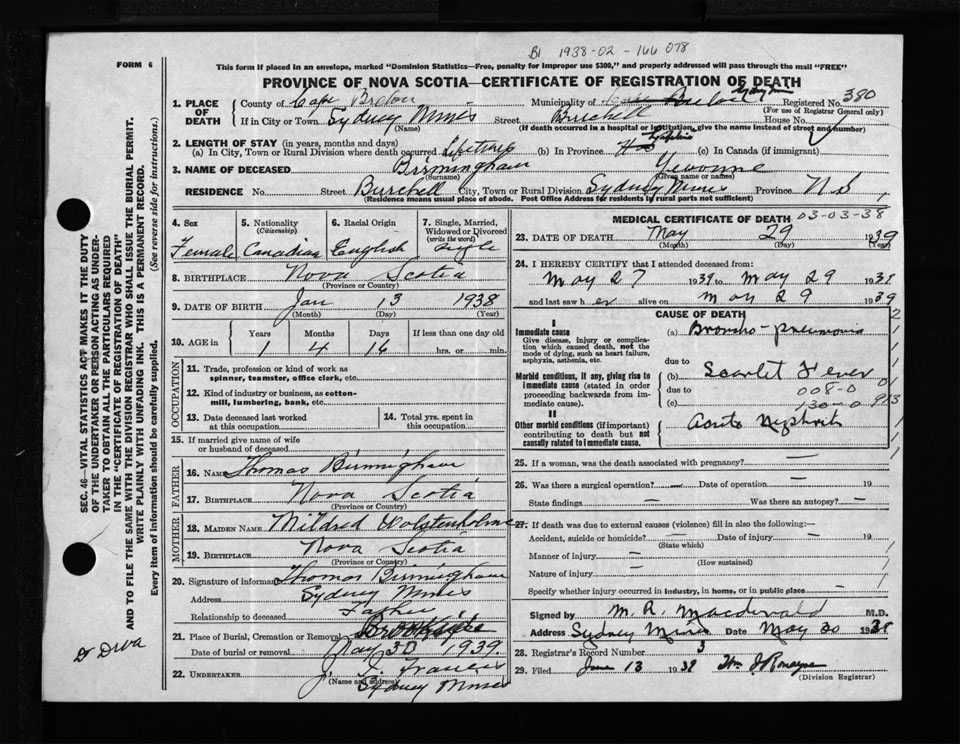 B1 1938-02-166078
FORM 6
This form if placed in an envelope, marked "Dominion Statistics—Free, penalty for improper use $300," and properly addressed will pass through the mail "FREE"
PROVINCE OF NOVA SCOTIA—CERTIFICATE OF REGISTRATION OF DEATH
SEC. 46—VITAL STATISTICS ACT MAKES IT THE DUTY
OF THE UNDERTAKER OR PERSON ACTING AS UNDER-
TAKER TO OBTAIN ALL THE PARTICULARS REQUIRED
IN THE "CERTIFICATE OF REGISTRATION OF DEATH"
AND TO FILE THE SAME WITH THE DIVISION REGISTRAR WHO SHALL ISSUE THE BURIAL PERMIT.
WRITE PLAINLY WITH UNFADING INK. THIS IS A PERMANENT RECORD.
Every item of information should be carefully supplied. (See reverse side for instructions.)
1. PLACE OF DEATH County of Cape Breton Municipality of Registered No. 380
(For use of Registrar General only)
If in City or Town Sydney Mines Street Burchell House No.
(Name) (If death occurred in a hospital or institution, give the name instead of street and number)
2. LENGTH OF STAY (in years, months and days)
(a) In City, Town or Rural Division where death occurred Lifetime (b) In Province Lifetime (c) In Canada (if immigrant)
3. NAME OF DECEASED Birmingham Yewonne
(Surname) (Given name or names)
RESIDENCE No. Street Burchell City, Town or Rural Division Sydney Mines Province N S
(Residence means usual place of abode. Post Office Address for residents in rural parts not sufficient)
4. Sex Female
5. Nationality (Citizenship) Canadian
6. Racial Origin English
7. Single, Married, Widowed or Divorced (write the word) Single
8. BIRTHPLACE Nova Scotia
(Province or Country)
9. DATE OF BIRTH Jan 13 1938
(Month) (Day) (Year)
10. AGE in Years Months Days If less than one day old
1 4 16 hrs. or min.
OCCUPATION
11. Trade, profession or kind of work as
spinner, teamster, office clerk, etc.
12. Kind of industry or business, as cotton-
mill, lumbering, bank, etc.
13. Date deceased last worked
at this occupation
14. Total yrs. spent in
this occupation
15. If married give name of wife
or husband of deceased
FATHER
16. NAME Thomas Birmingham
17. BIRTHPLACE Nova Scotia
(Province or Country)
MOTHER
18. MAIDEN NAME Mildred Wolstenholme
19. BIRTHPLACE Nova Scotia
(Province or Country)
20. Signature of informant Thomas Birmingham
Address Sydney Mines
Relationship to deceased Father
21. Place of Burial, Cremation or Removal
Date of burial or removal May 30 1939
22. UNDERTAKER J. J. Francis
(Name and address) Sydney Mines
MEDICAL CERTIFICATE OF DEATH 03-03-38
23. DATE OF DEATH May 29 1939
(Month) (Day) (Year)
24. I HEREBY CERTIFY that I attended deceased from:
May 27 1939 to May 29 1939
and last saw her alive on May 29 1939
CAUSE OF DEATH
I
Immediate cause (a) Broncho-pneumonia
Give disease, injury or complica-
tion which caused death, not the
mode of dying, such as heart failure,
asphyxia, asthenia, etc.
due to
Morbid conditions, if any, giving rise to
immediate cause (stated in order
proceeding backwards from im-
mediate cause).
(b) Scarlet Fever
due to 008-0
(c) 130-0
II
Other morbid conditions (if important)
contributing to death but not
causally related to immediate cause.
Acute Nephritis
25. If a woman, was the death associated with pregnancy? —
26. Was there a surgical operation? — Date of operation — 19
State findings — Was there an autopsy? —
27. If death was due to external causes (violence) fill in also the following:—
Accident, suicide or homicide? — Date of injury — 19
(State which)
Manner of injury —
(How sustained)
Nature of injury —
Specify whether injury occurred in industry, in home, or in public place
Signed by M. R. Macdonald M.D.
Address Sydney Mines Date May 30 1938
28. Registrar's Record Number 3
29. Filed June 13 1939 Wm J Romayne
(Division Registrar)